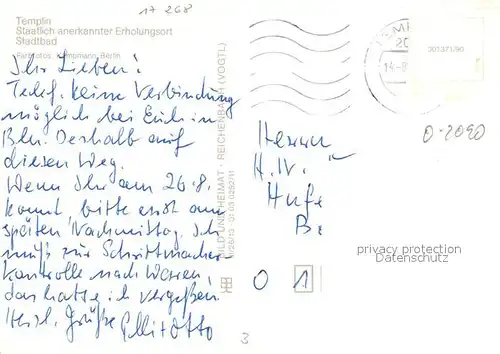 17 268
Templin
Staatlich anerkannter Erholungsort
Stadtbad
Farbfotos: Kampmann, Berlin
Ihr Lieben!
Telef. keine Verbindung
möglich bei Euch in
Bln. Deshalb auf
diesen Weg.
Wenn Ihr am 26.8.
kommt, bitte erst am
späten Nachmittag. Ich
muß zur Schrittmacher
kontrolle nach Waren,
das hatte ich vergeßen!
Herzl. Grüße Elli + Otto
BILD UND HEIMAT · REICHENBACH (VOGTL)
TEMP
20
14-8
301371/90
O-2090
Herrn
H.
Hufe
Be
privacy protection
Datenschutz
O 1
3